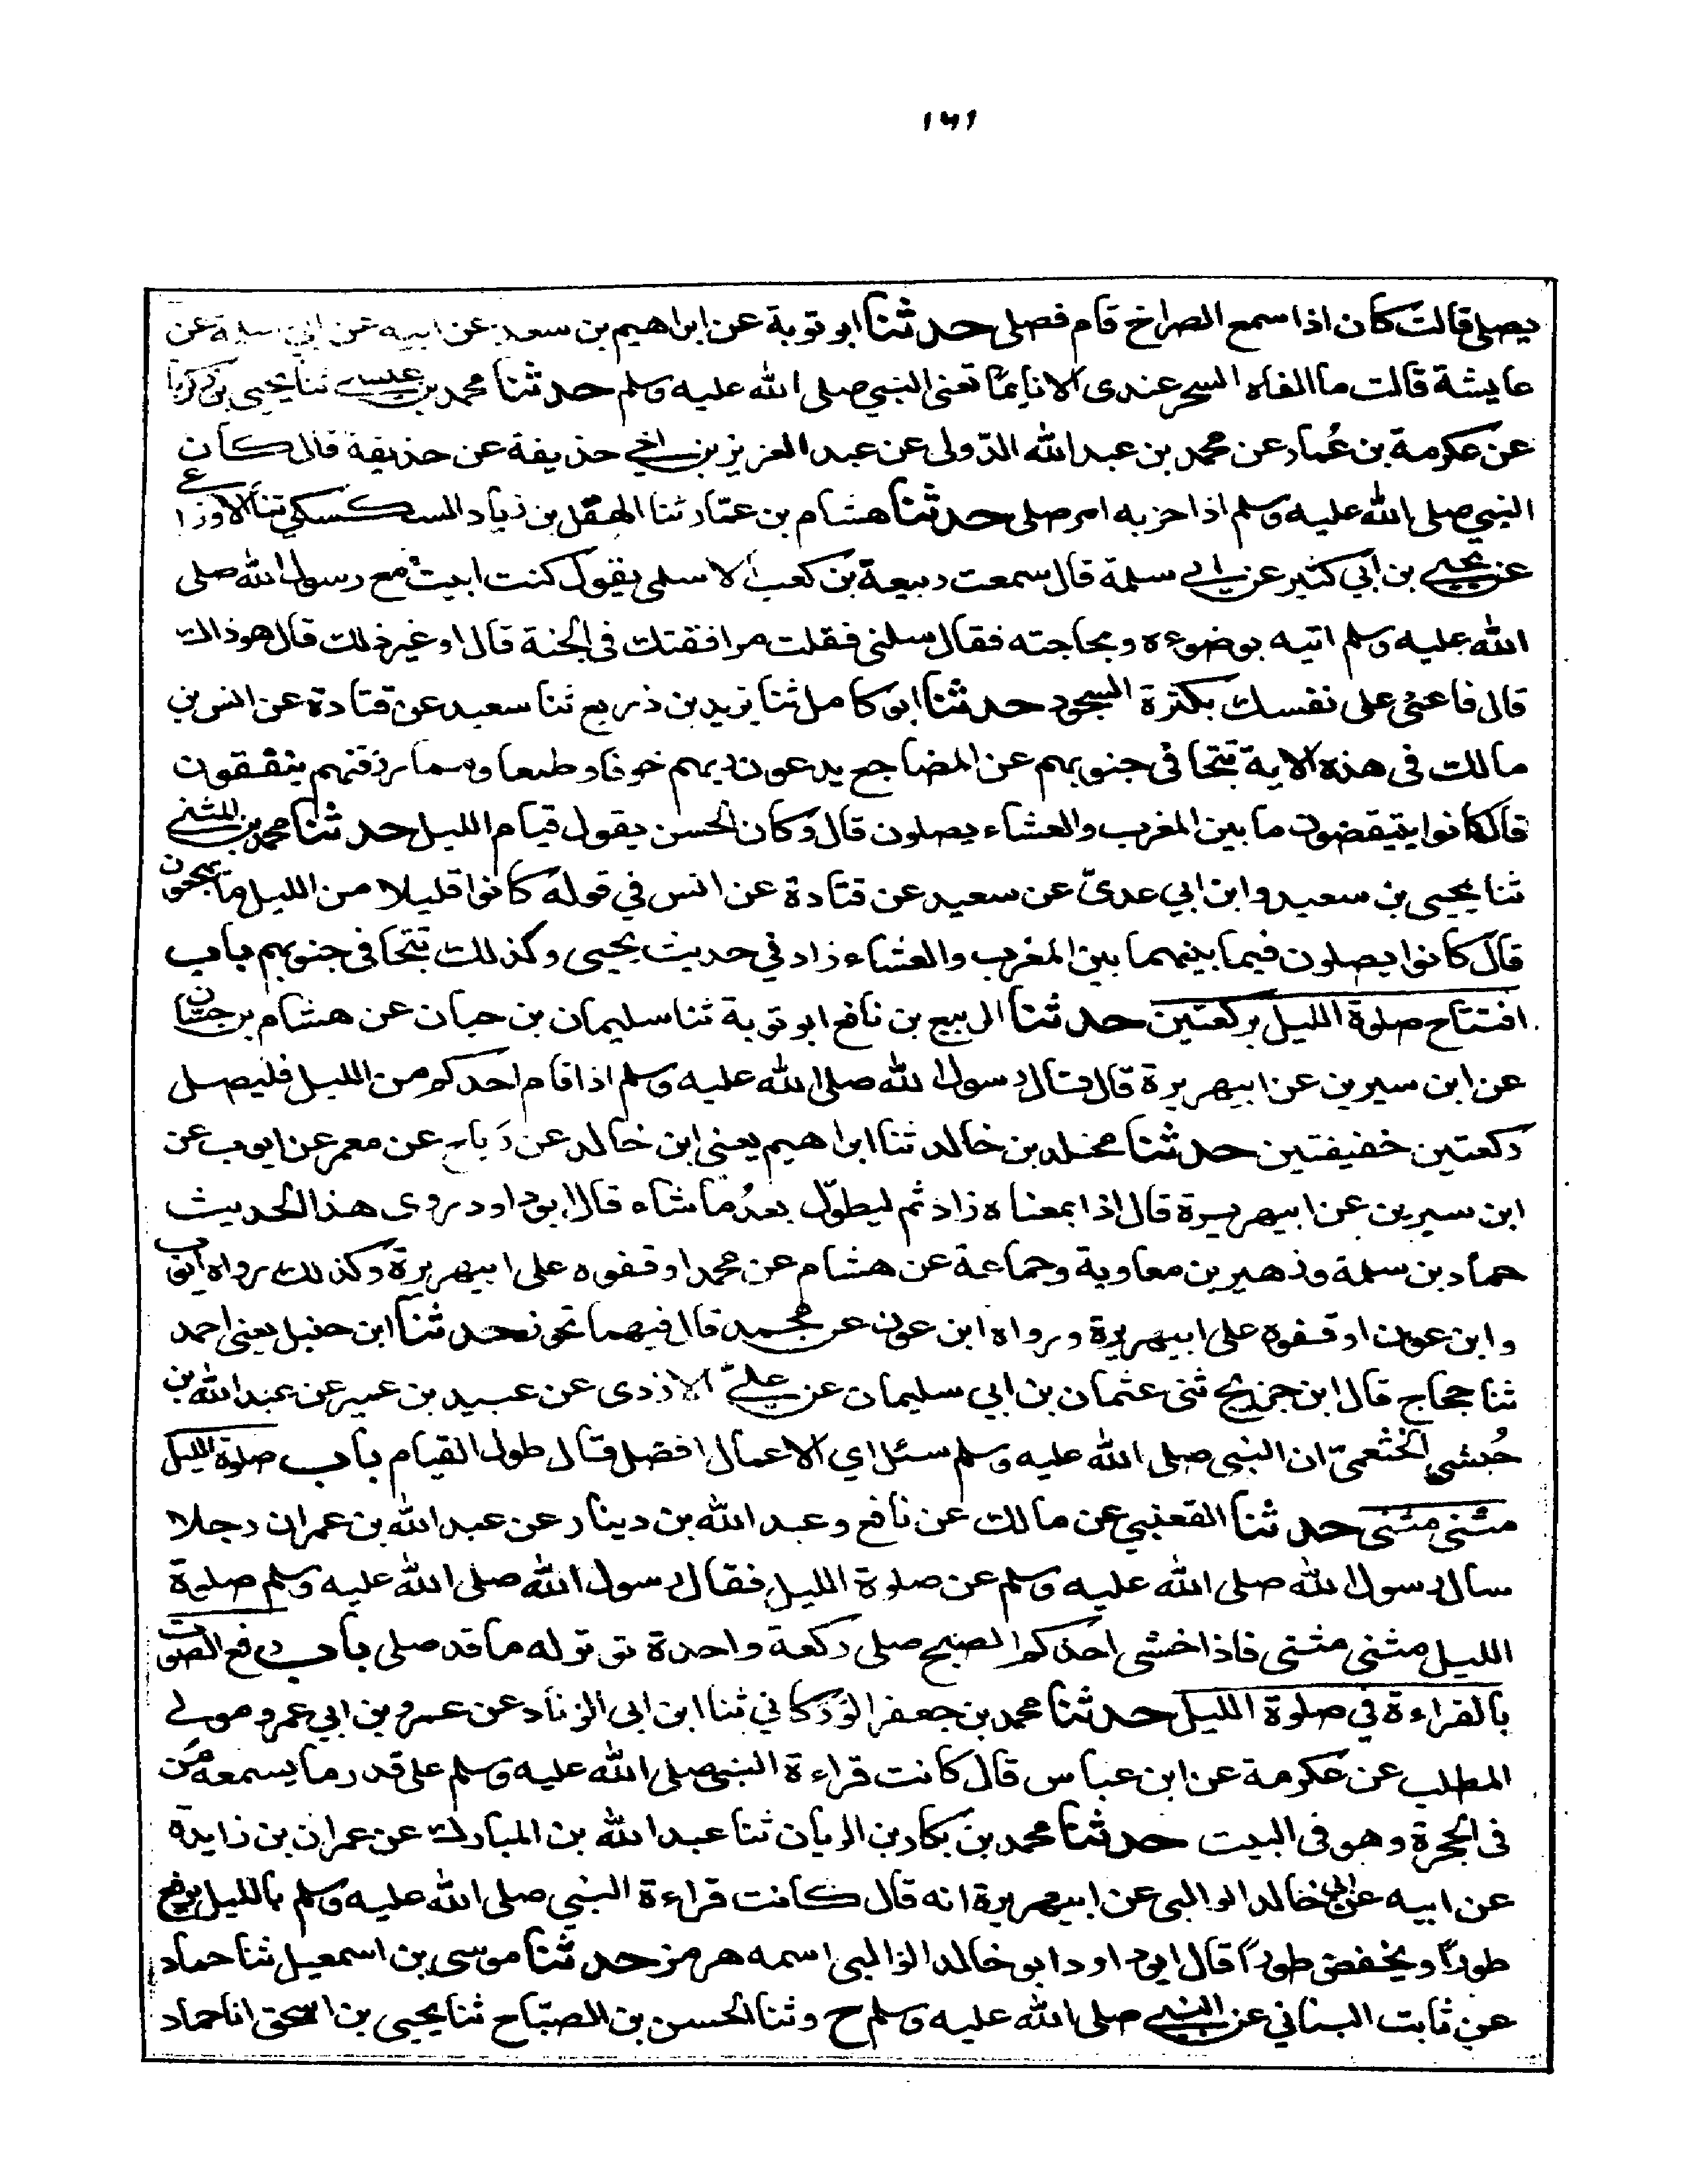 ١٦١
يصلي قالت كان اذا سمع الصراخ قام فصلى حدثنا ابو توبة عن ابراهيم بن سعد عن ابيه عن ابي سلمة عن
عايشة قالت ما الفاه السحر عندى الا نايمًا تعنى النبي صلى الله عليه وسلم حدثنا محمد بن عيسى ثنا يحيى بن زكريا
عن عكرمة بن عُمار عن محمد بن عبد الله الدّولى عن عبد العزيز بن اخي حذيفة عن حذيفة قال كان
النبي صلى الله عليه وسلم اذا حزبه امر صلى حدثنا هشام بن عمّار ثنا الهقل بن زياد السكسكي ثنا الاوزاعي
عن يحيى بن ابي كثير عن ابي سلمة قال سمعت ربيعة بن كعب الاسلمى يقول كنت ابيت مع رسول الله صلى
الله عليه وسلم اتيه بوضوءه وبحاجته فقال سلنى فقلت مرافقتك فى الجنة قال او غير ذلك قال هو ذاك
قال فاعنى على نفسك بكثرة السجود حدثنا ابو كامل ثنا يزيد بن زريع ثنا سعيد عن قتادة عن انس بن
مالك فى هذه الاية تتجافى جنوبهم عن المضاجع يدعون ربهم خوفا وطمعا ومما رزقنهم ينفقون
قال كانوا يتيقضون ما بين المغرب والعشاء يصلون قال وكان الحسن يقول قيام الليل حدثنا محمد بن المثنى
ثنا يحيى بن سعيد وابن ابي عدىّ عن سعيد عن قتادة عن انس في قوله كانوا قليلا من الليل ما يهجعون
قال كانوا يصلون فيما بينهما بين المغرب والعشاء زاد في حديث يحيى وكذلك تتجافى جنوبهم باب
افتتاح صلوة الليل بركعتين حدثنا الربيع بن نافع ابو توبة ثنا سليمان بن حيان عن هشام بن حسّان
عن ابن سيرين عن ابيهريرة قال قال رسول الله صلى الله عليه وسلم اذا قام احدكم من الليل فليصل
ركعتين خفيفتين حدثنا مخلد بن خالد ثنا ابراهيم يعنى ابن خالد عن رَباح عن معمر عن ايوب عن
ابن سيرين عن ابيهريرة قال اذا بمعناه زاد ثم ليطوّل بعدُ ما شاء قال ابو داود روى هذا الحديث
حماد بن سلمة وزهير بن معاوية وجماعة عن هشام عن محمد اوقفوه على ابيهريرة وكذلك رواه ايوب
وابن عون اوقفوه على ابيهريرة ورواه ابن عون عن محمد قال فيهما تجوز حدثنا ابن حنبل يعنى احمد
ثنا حجاج قال ابن جريج ثنى عثمان بن ابي سليمان عن عليّ الازدى عن عبيد بن عمير عن عبد الله بن
حُبشى الخثعمىّ ان النبى صلى الله عليه وسلم سئل اي الاعمال افضل قال طول القيام باب صلوة الليل
مثنى مثنى حدثنا القعنبي عن مالك عن نافع وعبد الله بن دينار عن عبد الله بن عمر ان رجلا
سال رسول الله صلى الله عليه وسلم عن صلوة الليل فقال رسول الله صلى الله عليه وسلم صلوة
الليل مثنى مثنى فاذا خشى احدكم الصبح صلى ركعة واحدة توتر له ما قد صلى باب رفع الصوت
بالقراءة في صلوة الليل حدثنا محمد بن جعفر الوَرَكاني ثنا ابن ابى الزناد عن عمرو بن ابي عمرو مولى
المطلب عن عكرمة عن ابن عباس قال كانت قراءة النبى صلى الله عليه وسلم على قدر ما يسمعه من
فى الحجرة وهو فى البيت حدثنا محمد بن بكار بن الريان ثنا عبد الله بن المبارك عن عمران بن زايدة
عن ابيه عن ابي خالد الوالبى عن ابيهريرة انه قال كانت قراءة النبي صلى الله عليه وسلم بالليل يرفع
طورًا ويخفض طورًا قال ابو داود ابو خالد الوالبى اسمه هرمز حدثنا موسى بن اسمعيل ثنا حماد
عن ثابت البناني عن النبي صلى الله عليه وسلم ح وثنا الحسن بن الصبّاح ثنا يحيى بن اسحق انا حماد